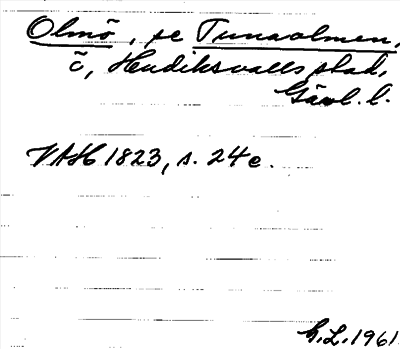 Olmö, se Tunaolmen,
ö, Hudiksvalls stad,
Gävl. l.
VAH 1823, s. 24 e.
G.L. 1961